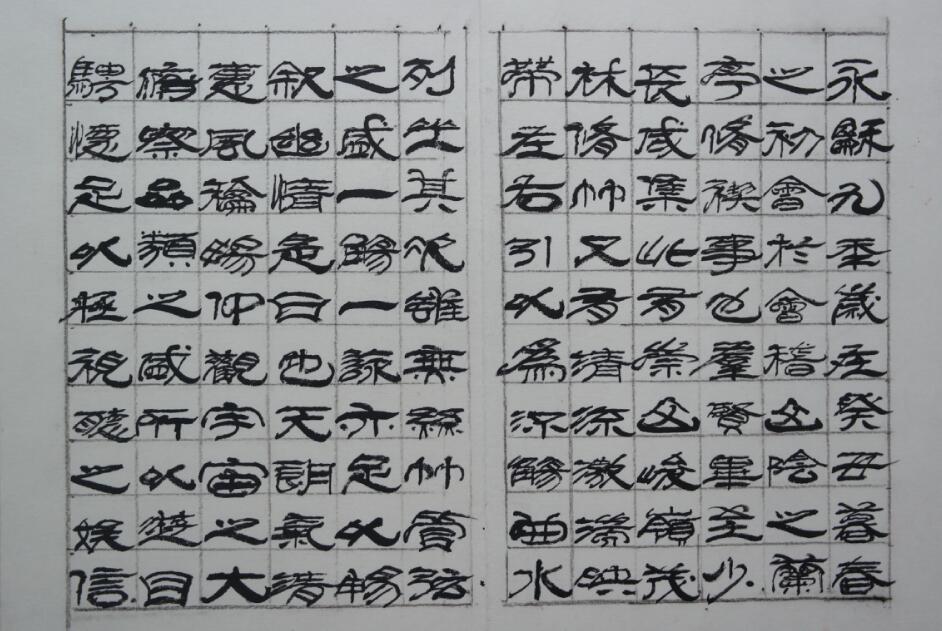 永龢九年歲在癸丑暮春
之初會於會稽山陰之蘭
亭脩禊事也羣賢畢至少
長咸集此有崇山峻嶺茂
林脩竹又有清流激湍映
帶左右引以爲流觴曲水
列坐其次雖無絲竹管弦
之盛一觴一詠亦足以暢
叙幽情是日也天朗氣清
惠風龢暢仰觀宇宙之大
俯察品類之盛所以遊目
騁懷足以極視聽之娛信